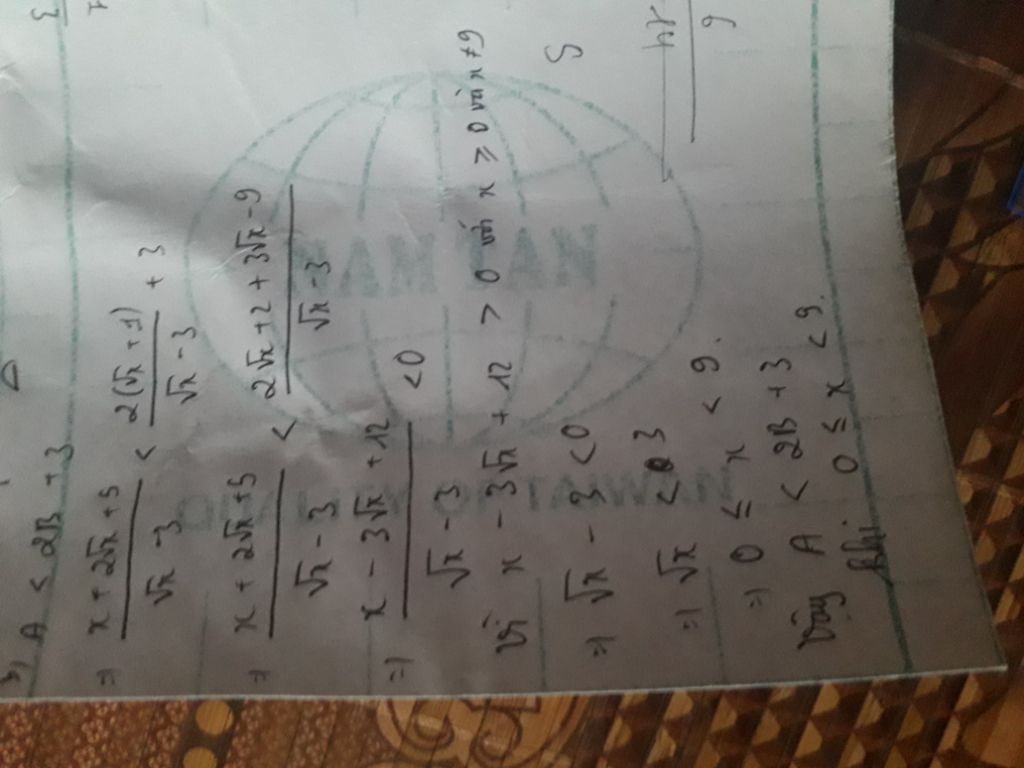 b, A < 2B + 3
=) (x + 2√x + 5)/(√x - 3) < (2(√x + 1))/(√x - 3) + 3
=) (x + 2√x + 5)/(√x - 3) < (2√x + 2 + 3√x - 9)/(√x - 3)
=) (x - 3√x + 12)/(√x - 3) < 0
Vì x - 3√x + 12 > 0 với x ≥ 0 và x ≠ 9
=) √x - 3 < 0
=) √x < 3
=) 0 ≤ x < 9.
Vậy A < 2B + 3
khi 0 ≤ x < 9.
NAM
QUALITY OF TAIWAN